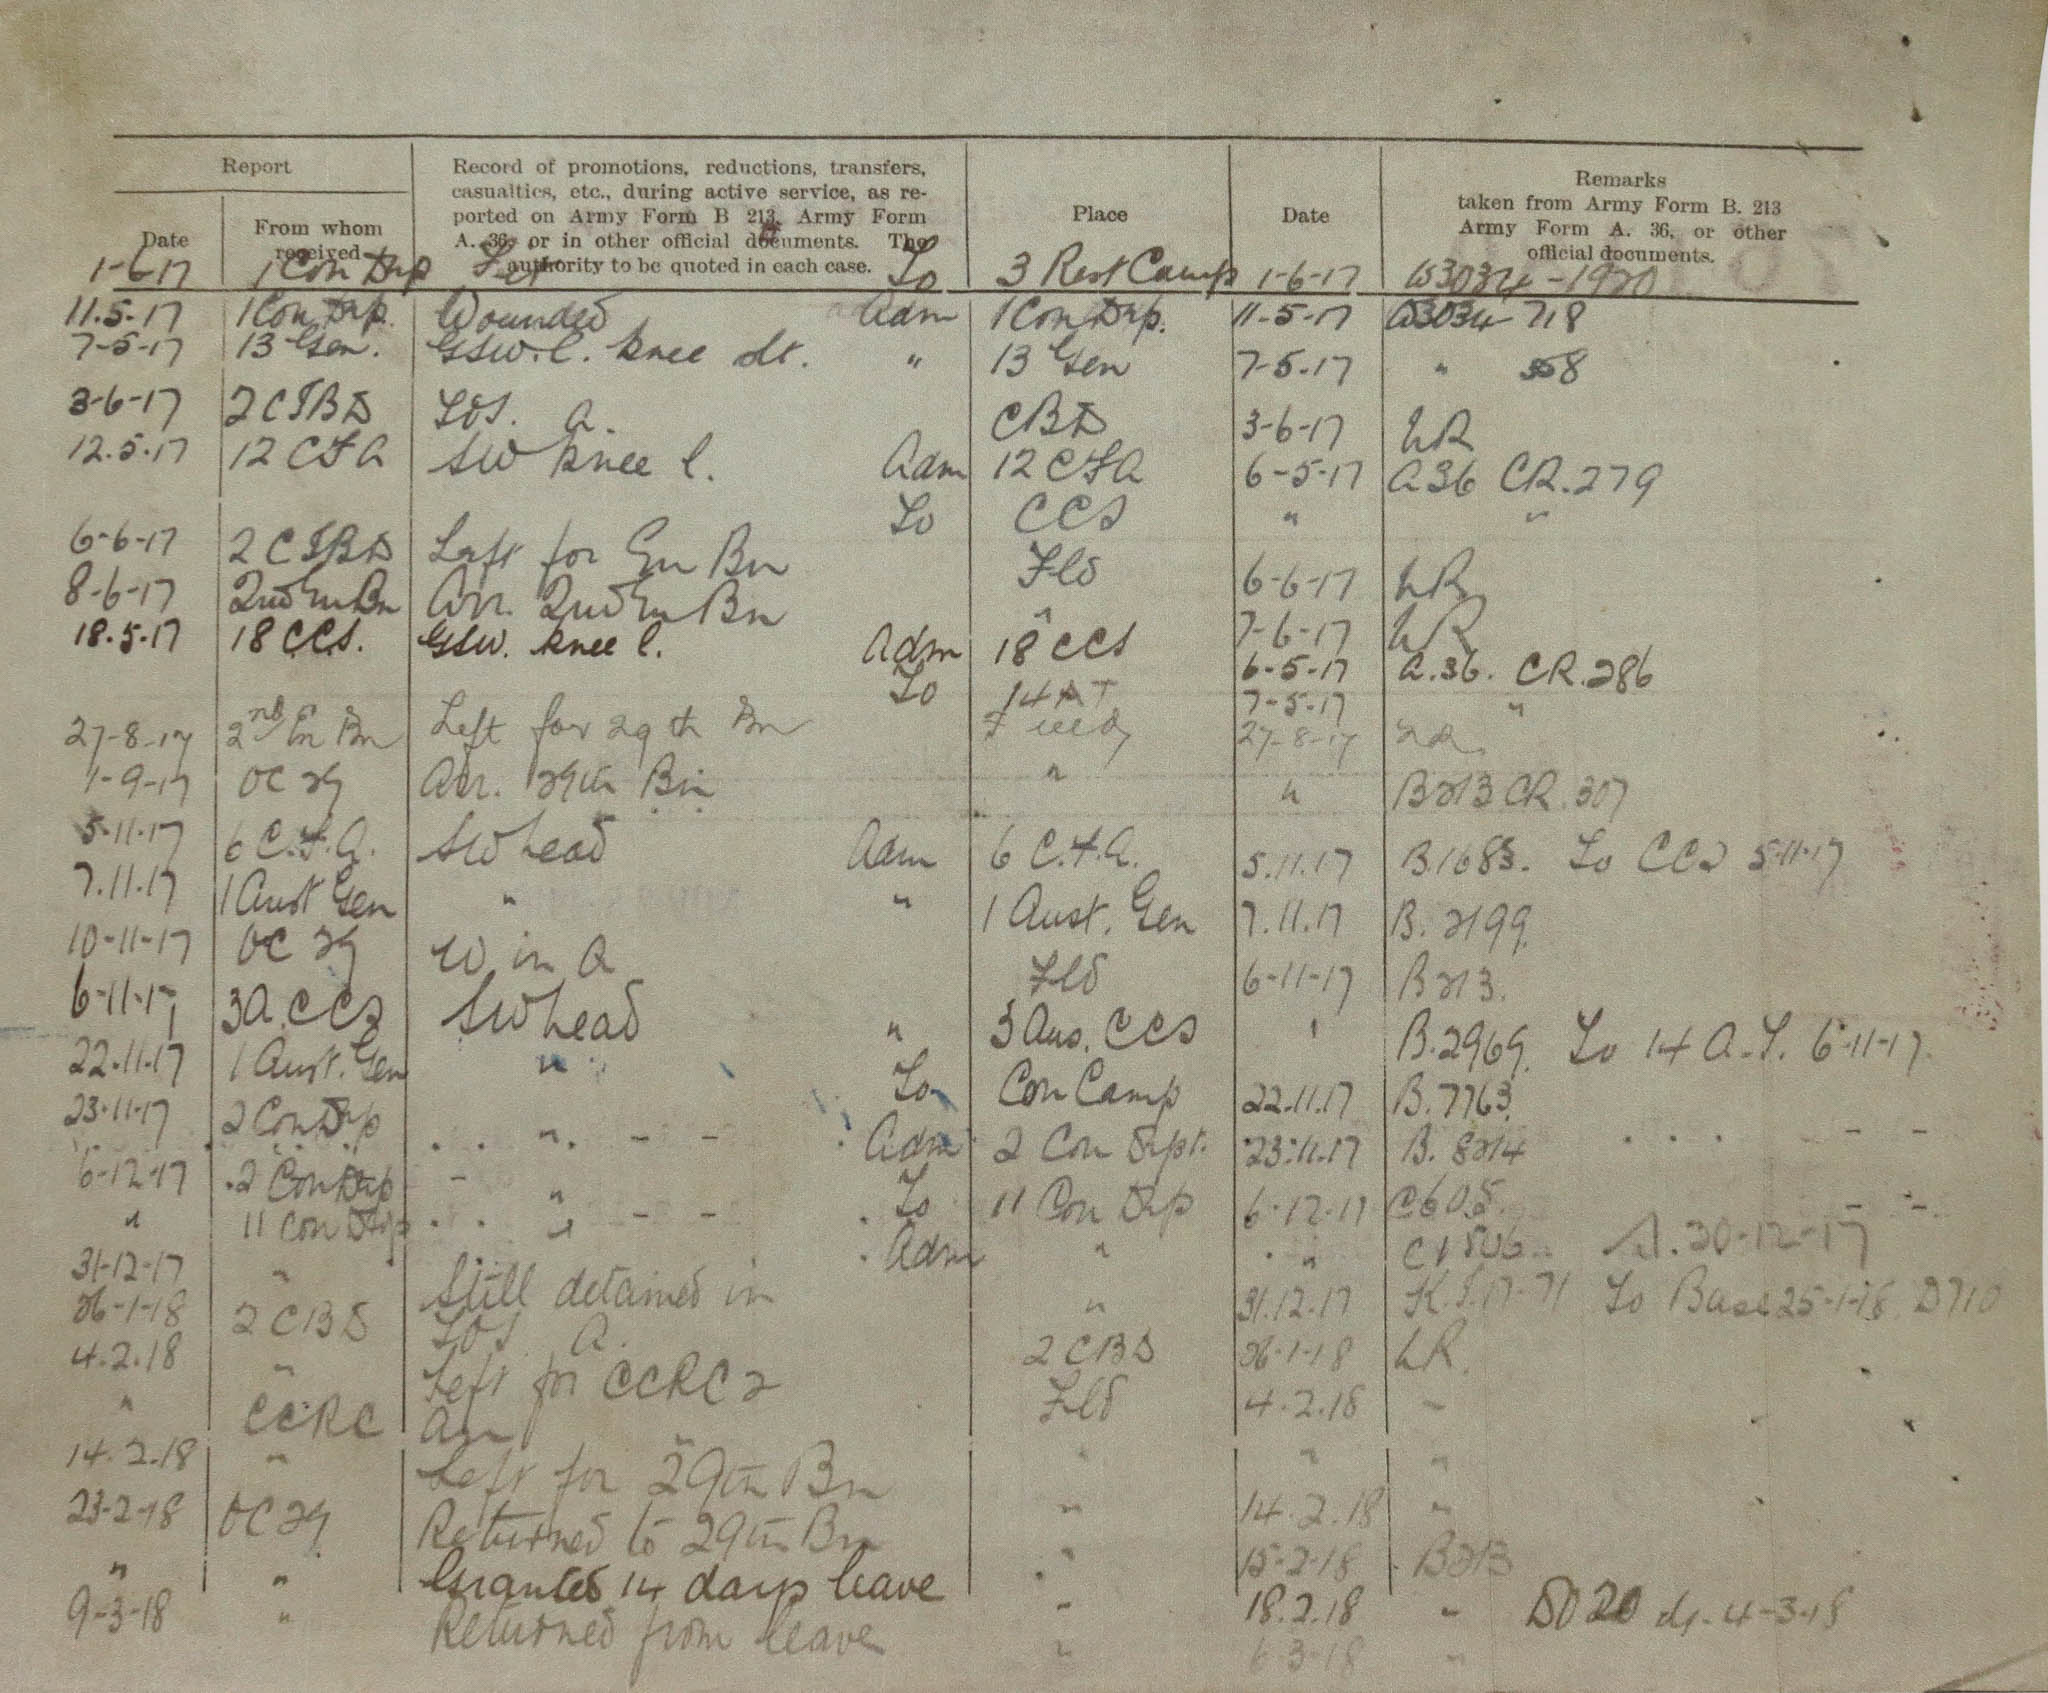 Report
Record of promotions, reductions, transfers,
casualties, etc., during active service, as re-
ported on Army Form B 213, Army Form
A. 36, or in other official documents. The
authority to be quoted in each case.
Place
Date
Remarks
taken from Army Form B. 213
Army Form A. 36, or other
official documents.
Date
From whom
received
1-6-17 1 Con Dep To 3 Rest Camp 1-6-17 W3034-1920
11.5.17 1 Con Dep. Wounded Adm 1 Con Dep. 11-5-17 W3034 718
7-5-17 13 Gen. GSW. l. knee slt. " 13 Gen 7-5-17 " 558
3-6-17 2 CIBD TOS. a. CBD 3-6-17 LR
12.5.17 12 CFA SW knee l. Adm 12 CFA 6-5-17 A36 CR.279
To CCS " "
6-6-17 2 CIBD Left for En Bn Fld 6-6-17 LR
8-6-17 2nd En Bn Arr. 2nd En Bn " 7-6-17 LR
18.5.17 18 CCS. GSW. knee l. Adm 18 CCS 6-5-17 A.36. CR.286
To 14 AT 7-5-17 "
27-8-17 2nd En Bn Left for 29th Bn Field 27-8-17 LR
1-9-17 OC 29 Arr. 29th Bn " " B213 CR.307
5.11.17 6 C.F.A. SW head Adm 6 C.F.A. 5.11.17 B.1683. To CCS 5.11.17
7.11.17 1 Aust Gen " " 1 Aust. Gen 7.11.17 B.2199.
10-11-17 OC 29 W in A Fld 6-11-17 B213.
6-11-17 3A.CCS SW head " 3 Aus. CCS " B.2969. To 14 A.T. 6-11-17.
22.11.17 1 Aust. Gen " To Con Camp 22.11.17 B.7763.
23.11.17 2 Con Dep " Adm 2 Con Dept. 23.11.17 B. 8214
6-12-17 2 Con Dep " To 11 Con Dep 6-12-17 C605.
" 11 Con Dep " Adm " " C1506 30-12-17
31-12-17 " Still detained in " 31.12.17 To Base 25-1-18 D710
26-1-18 2 CBD TOS a. 2 CBD 26-1-18 LR.
4.2.18 " Left for CCRC 2 Fld 4.2.18 "
" CCRC Arr " " " "
14.2.18 " Left for 29th Bn " 14.2.18 "
23-2-18 OC 29 Returned to 29th Bn " 15-2-18 B213
" " Granted 14 days leave " 18.2.18 " DO 20 d/- 4-3-18
9-3-18 " Returned from leave " 6-3-18 "